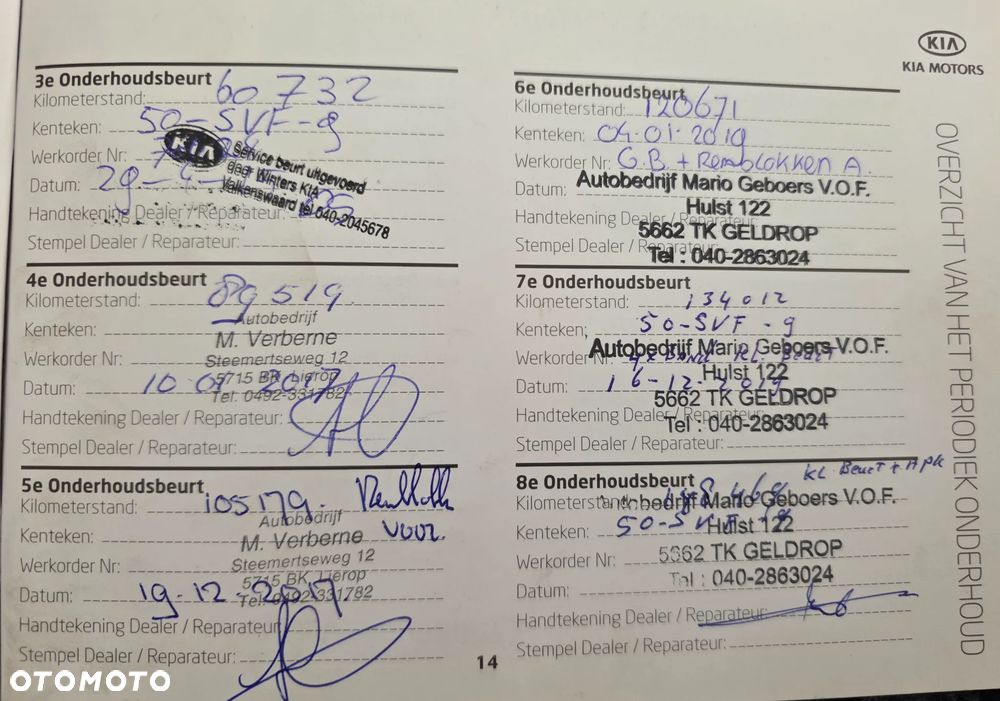 KIA
KIA MOTORS
OVERZICHT VAN HET PERIODIEK ONDERHOUD
3e Onderhoudsbeurt
Kilometerstand: 60732
Kenteken: 50-SVF-9
Werkorder Nr:
Datum: 29-4-
Handtekening Dealer / Reparateur:
Stempel Dealer / Reparateur:
KIA
Service beurt uitgevoerd
door Winters KIA
Valkenswaard tel 040-2045678
4e Onderhoudsbeurt
Kilometerstand: 89519
Kenteken:
Werkorder Nr:
Datum: 10 07 2017
Handtekening Dealer / Reparateur:
Stempel Dealer / Reparateur:
Autobedrijf
M. Verberne
Steemertseweg 12
5715 BK, Lierop
Tel. 0492-331782
5e Onderhoudsbeurt
Kilometerstand: 105179. Remblokk
Kenteken: voor.
Werkorder Nr:
Datum: 19-12-2017
Handtekening Dealer / Reparateur:
Stempel Dealer / Reparateur:
Autobedrijf
M. Verberne
Steemertseweg 12
5715 BK, Lierop
Tel. 0492-331782
6e Onderhoudsbeurt
Kilometerstand: 120671
Kenteken: 04-01-2019
Werkorder Nr: G.B + Remblokken A.
Datum:
Handtekening Dealer / Reparateur:
Stempel Dealer / Reparateur:
Autobedrijf Mario Geboers V.O.F.
Hulst 122
5662 TK GELDROP
Tel : 040-2863024
7e Onderhoudsbeurt
Kilometerstand: 134012
Kenteken: 50-SVF-9
Werkorder Nr: KL. Beurt
Datum: 16-12-2019
Handtekening Dealer / Reparateur:
Stempel Dealer / Reparateur:
Autobedrijf Mario Geboers V.O.F.
Hulst 122
5662 TK GELDROP
Tel : 040-2863024
8e Onderhoudsbeurt
KL. Beurt + APK
Kilometerstand:
Kenteken: 50-SVF-9
Werkorder Nr:
Datum:
Handtekening Dealer / Reparateur:
Stempel Dealer / Reparateur:
Autobedrijf Mario Geboers V.O.F.
Hulst 122
5662 TK GELDROP
Tel : 040-2863024
14
OTOMOTO